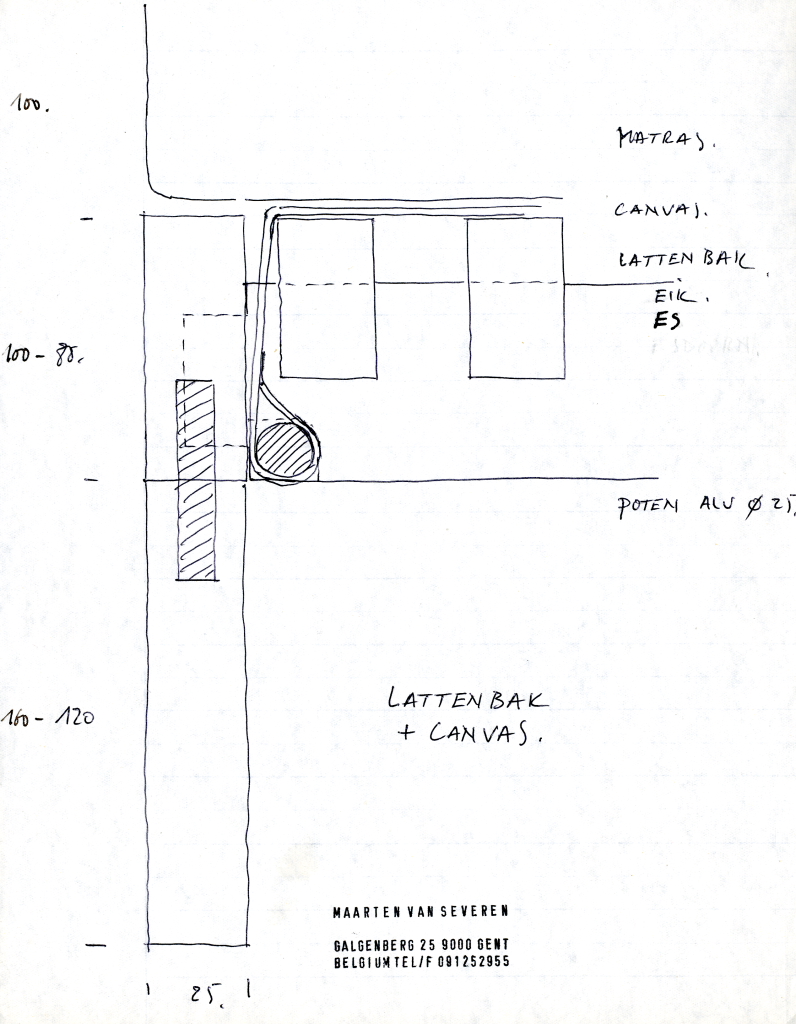 100.
MATRAS.
CANVAS.
LATTENBAK.
EIK.
ES
100 - 85.
POTEN ALU Ø 25.
160 - 120
LATTENBAK
+ CANVAS.
MAARTEN VAN SEVEREN
GALGENBERG 25 9000 GENT
BELGIUM TEL/F 091252955
25.